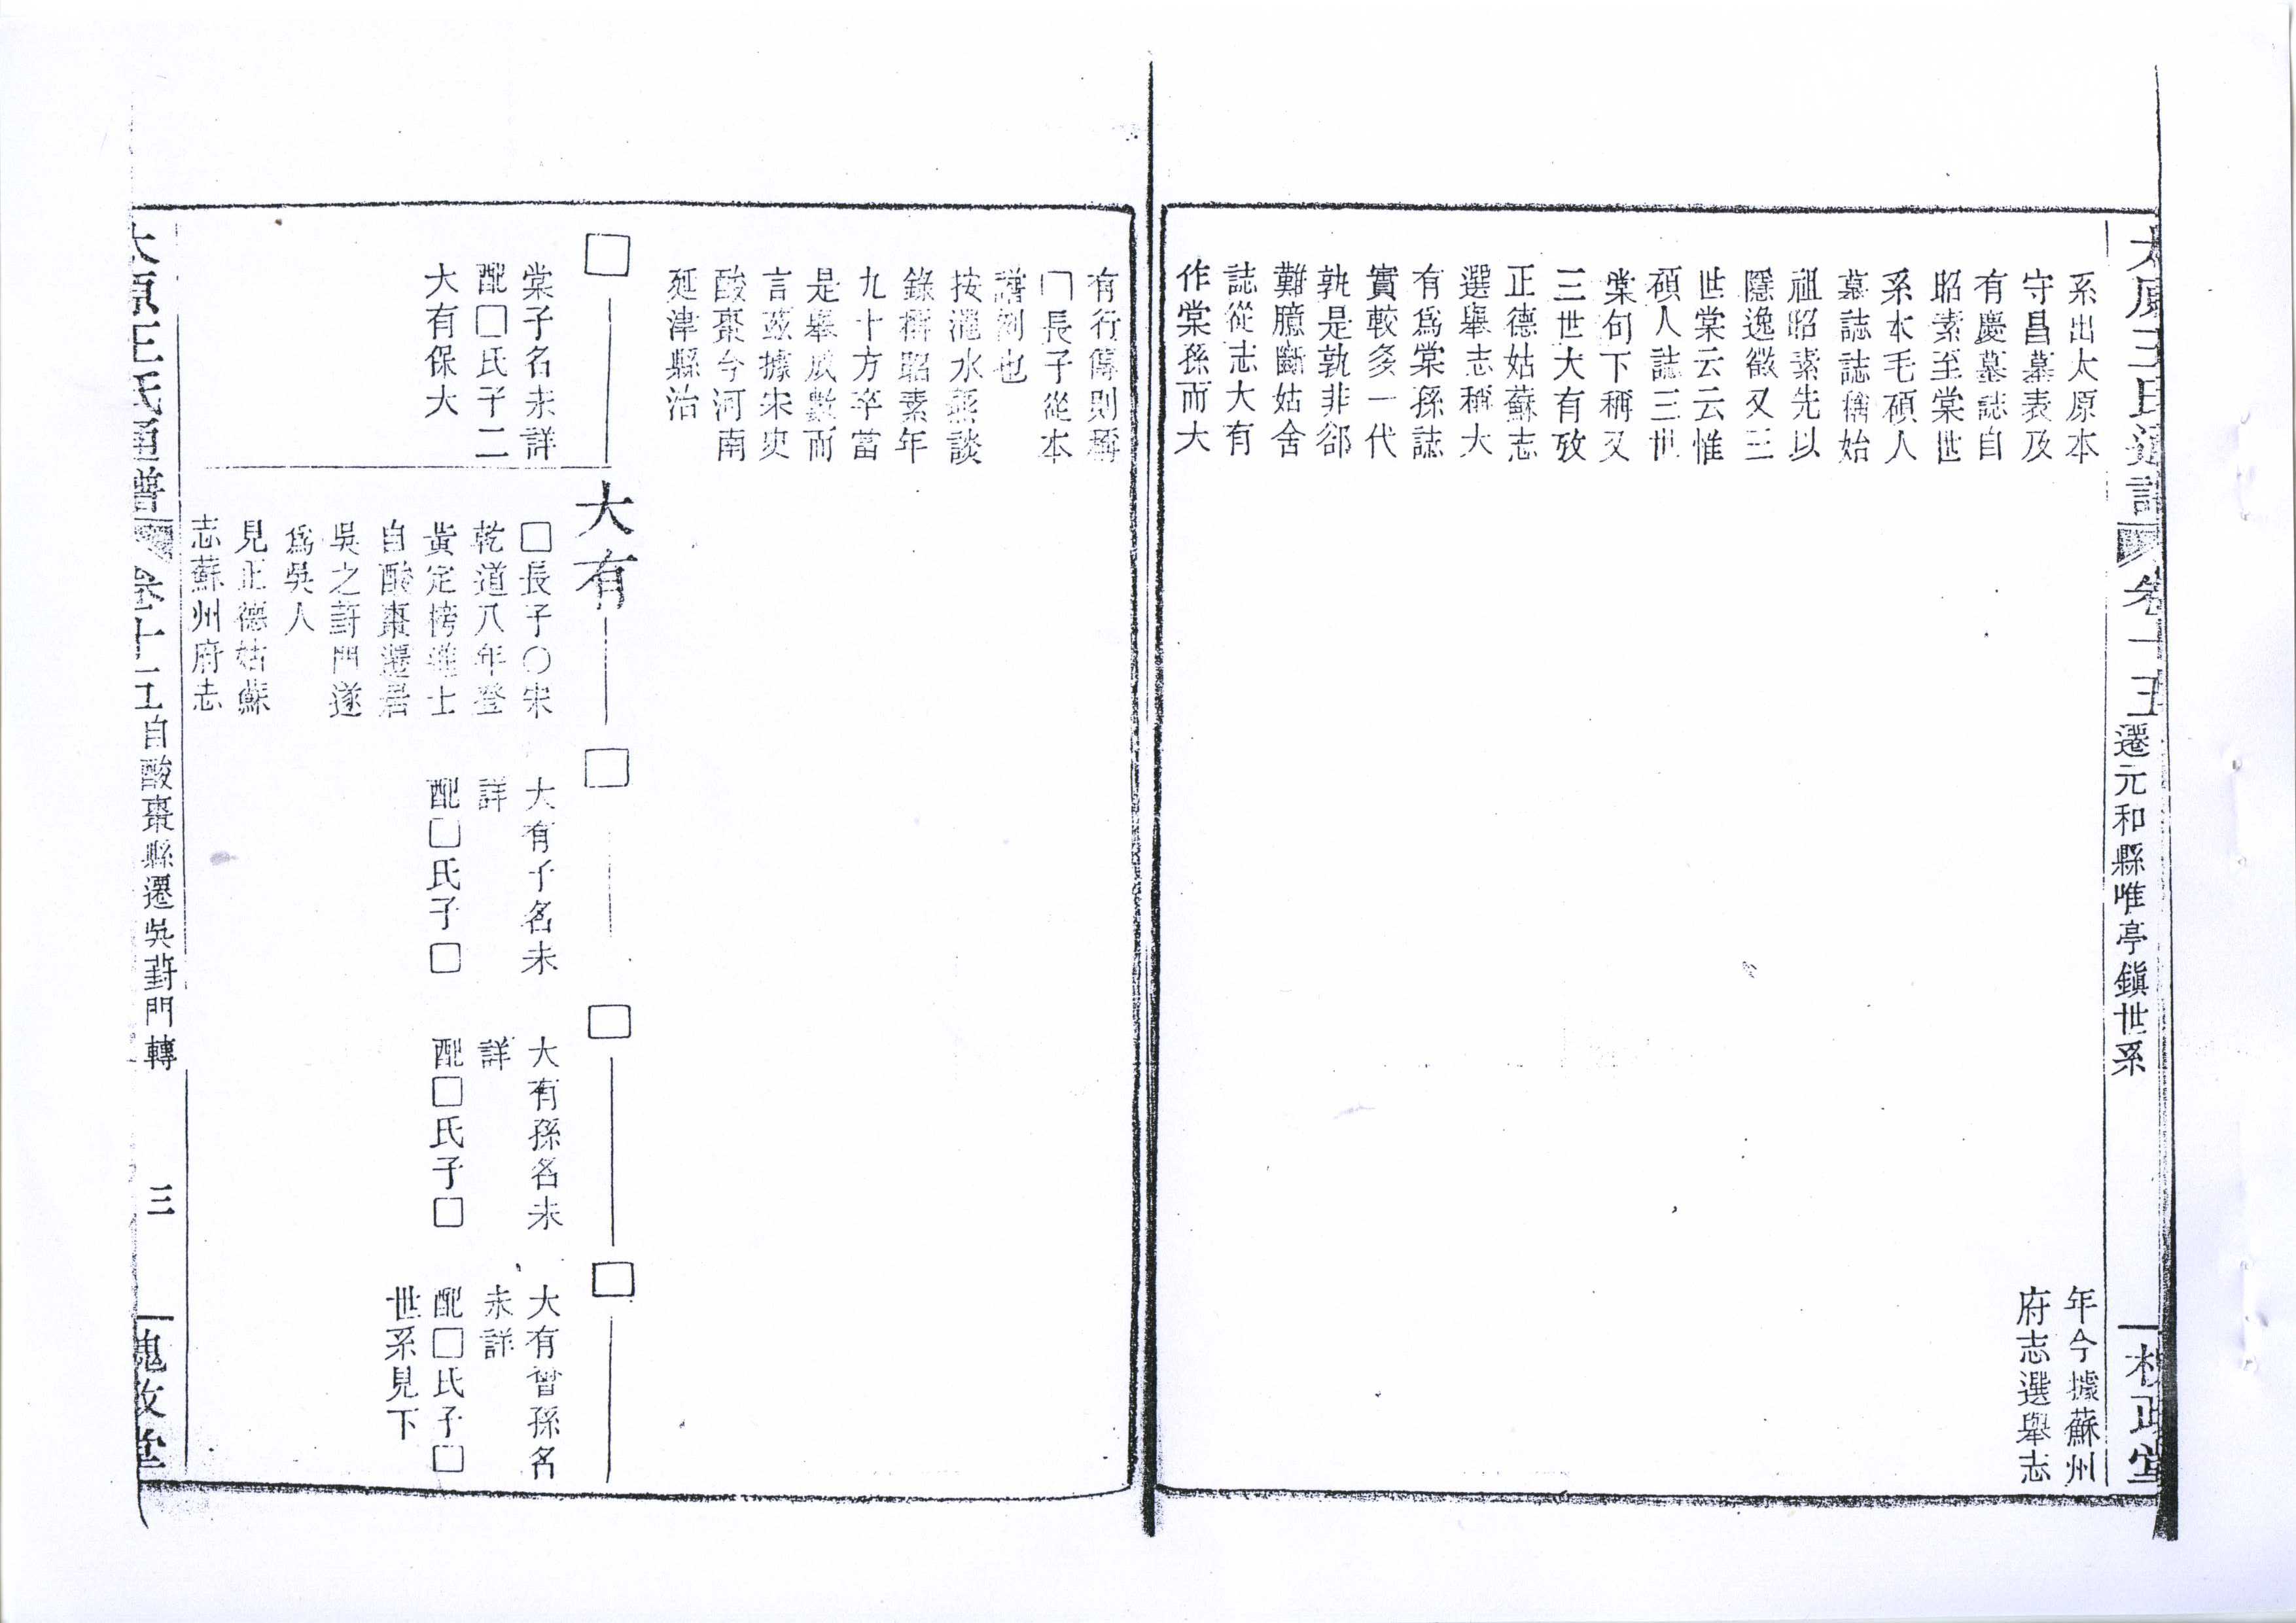 太原王氏通譜
卷十五
遷元和縣唯亭鎮世系
系出太原本
守昌墓表及
有慶墓誌自
昭素至棠世
系本毛碩人
墓誌誌稱始
祖昭素先以
隱逸徵又三
世棠云云惟
碩人誌三世
棠句下稱又
三世大有攷
正德姑蘇志
選舉志稱大
有爲棠孫誌
實較多一代
孰是孰非郤
難臆斷姑舍
誌從志大有
作棠孫而大
年今據蘇州
府志選舉志
有行傳則稱
□長子從本
譜例也
按澠水燕談
錄稱昭素年
九十方卒當
是舉成數而
言茲據宋史
酸棗今河南
延津縣治
□
棠子名未詳
配□氏子二
大有保大
大有
□長子○宋
乾道八年登
黃定榜進士
自酸棗遷居
吳之葑門遂
爲吳人
見正德姑蘇
志蘇州府志
□
大有子名未
詳
配□氏子□
□
大有孫名未
詳
配□氏子□
□
大有曾孫名
未詳
配□氏子□
世系見下
太原王氏通譜
卷十五
自酸棗縣遷吳葑門轉
三